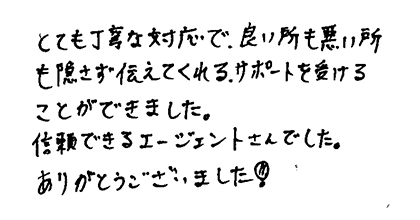 とても丁寧な対応で、良い所も悪い所
も隠さず伝えてくれる、サポートを受ける
ことができました。
信頼できるエージェントさんでした。
ありがとうございました